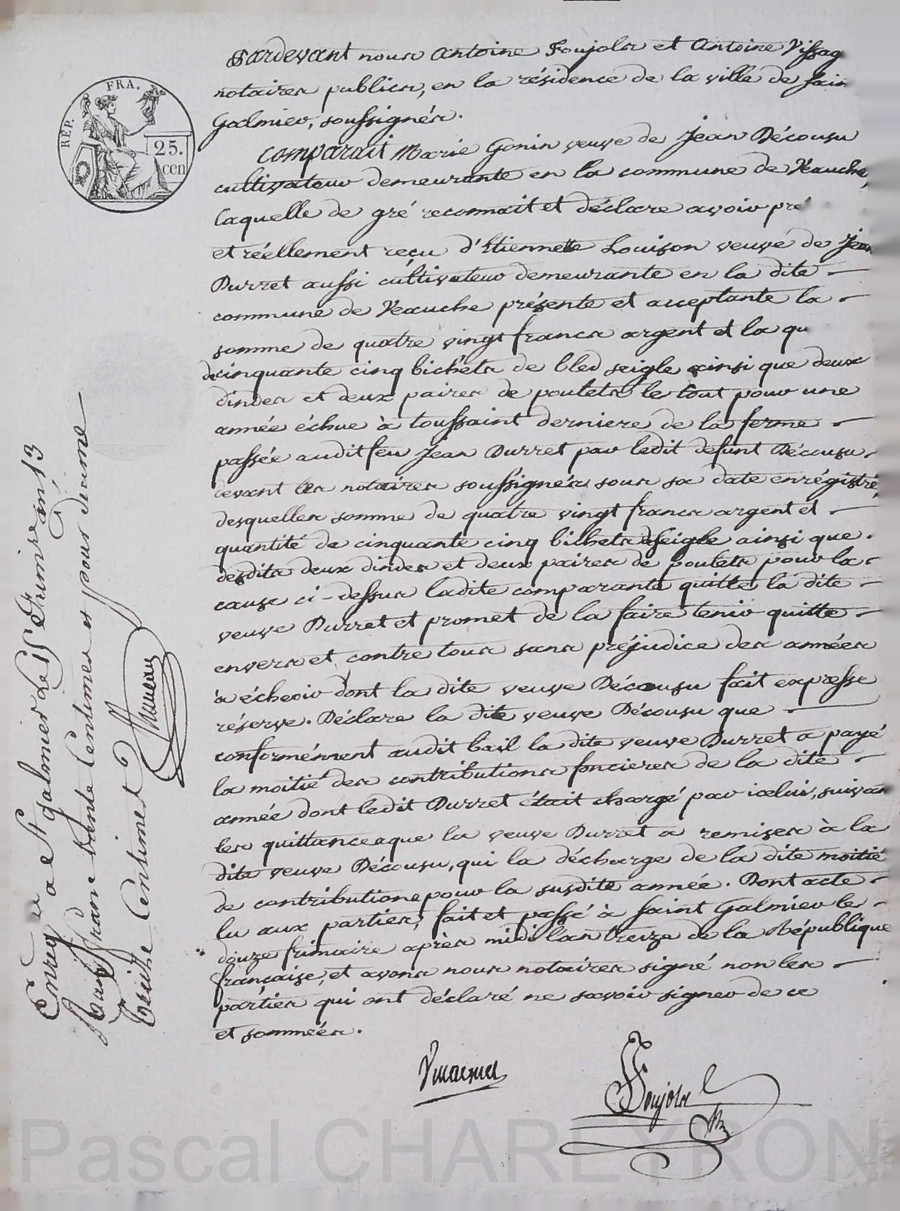 RÉP. FRA.
25.
cen
Pardevant nous Antoine Foujols et Antoine
notaires publics, en la résidence de la ville de Sain
Galmier, soussignés.
Comparait Marie Gonin veuve de Jean Décousu
cultivateur demeurante en la commune de Veauche,
Laquelle de gré reconnait et déclare avoir pré
et réellement reçu d'Etiennette Louison veuve de Jean
Durret aussi cultivateur demeurante en la dite
commune de Veauche présente et acceptante la
somme de quatre vingt francs argent et la qu
de cinquante cinq bichets de bled seigle ainsi que deux
dindes et deux paires de poulets le tout pour une
année échue à toussaint derniere de la ferme
passée audit feu Jean Durret par ledit defunt Décousu
devant les notaires soussignés sous sa date enrégistré
desquelles somme de quatre vingt francs argent et
quantité de cinquante cinq bichets seigle ainsi que
desdits deux dindes et deux paires de poulets pour la
cause ci-dessus ladite comparante quitte la dite
veuve Durret et promet de la faire tenir quitte
envers et contre tous sans préjudice des années
à échoir dont la dite veuve Décousu fait expresse
réserve. Déclare la dite veuve Décousu que
conformément audit bail la dite veuve Durret a payé
la moitié des contributions foncieres de la dite
année dont ledit Durret était chargé par icelui, suivan
les quittances que la veuve Durret a remises à la
dite veuve Décousu, qui la décharge de la dite moitié
de contributions pour la susdite année. Dont acte
lu aux parties, fait et passé à Saint Galmier le
douze frimaire après midi l'an treize de la République
française, et avons nous notaires signé non les
parties qui ont déclaré ne savoir signer de ce
et sommées.
Foujols
Enreg à St galmier le 15 frimaire an 13
franc trente Centimes et pour decime
treize Centimes
Pascal CHARLEYRON